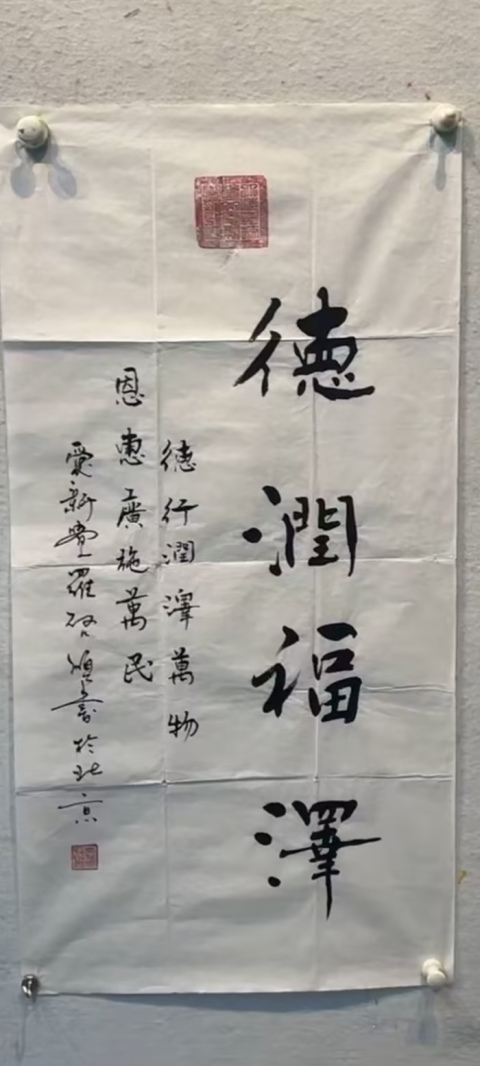 德潤福澤
德行潤澤萬物
恩惠廣施萬民
愛新覺羅啓書於北京